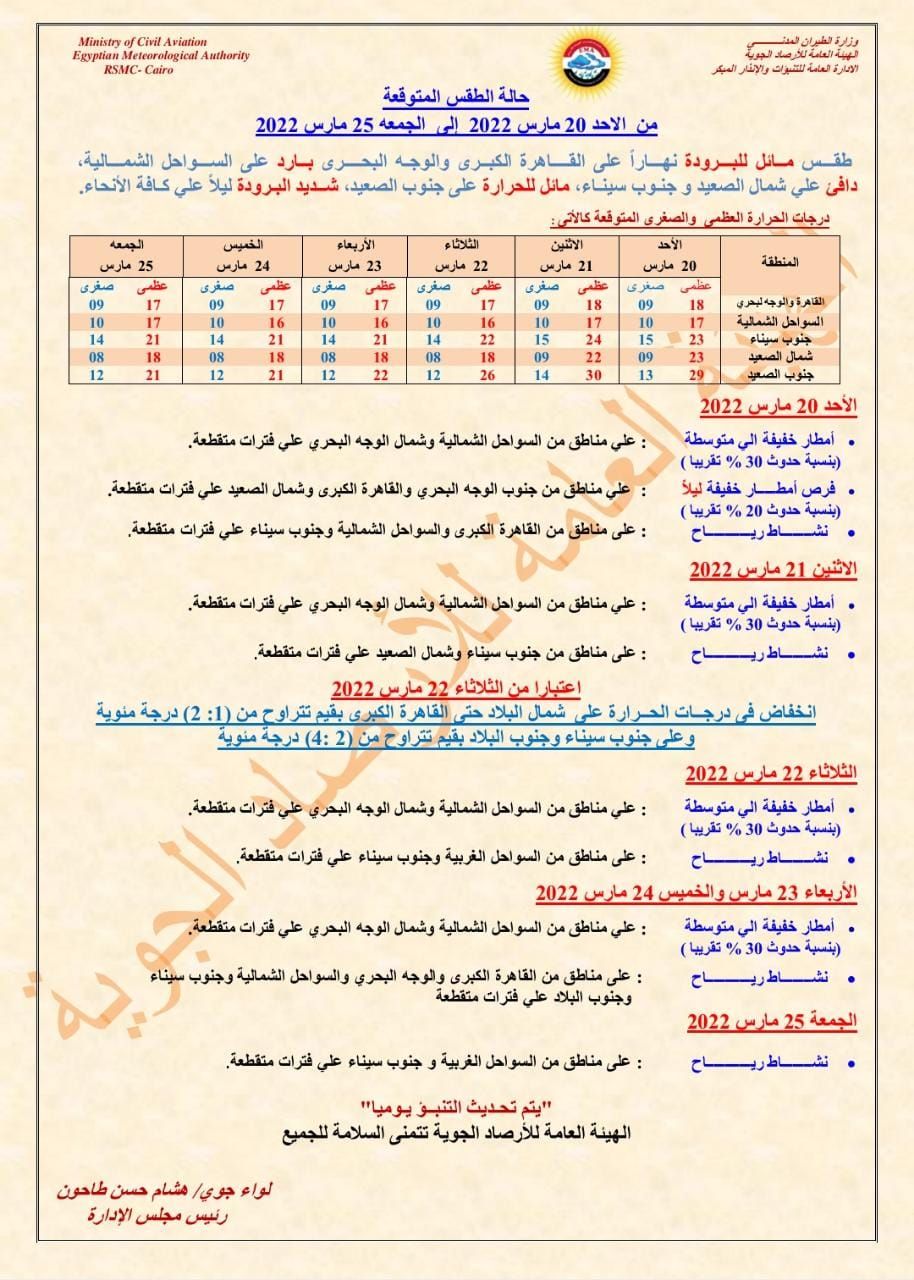 Ministry of Civil Aviation
Egyptian Meteorological Authority
RSMC- Cairo
وزارة الطيران المدنـــــي
الهيئة العامة للأرصاد الجوية
الادارة العامة للتنبؤات والإنذار المبكر
حالة الطقس المتوقعة
من الاحد 20 مارس 2022 إلى الجمعه 25 مارس 2022
طقـس مـائل للبـرودة نهـاراً على القـاهرة الكبـرى والوجه البحـرى بـارد على السـواحل الشمـالية،
دافئ علي شمال الصعيد و جنـوب سينـاء، مائل للحرارة على جنوب الصعيد، شـديد البـرودة ليلاً علي كـافة الأنحاء.
درجات الحرارة العظمي والصغرى المتوقعة كالآتي:
المنطقة الأحد الاثنين الثلاثاء الأربعاء الخميس الجمعه
20 مارس 21 مارس 22 مارس 23 مارس 24 مارس 25 مارس
عظمى صغرى عظمى صغرى عظمى صغرى عظمى صغرى عظمى صغرى عظمى صغرى
القاهرة والوجه لبحري 18 09 18 09 17 09 17 09 17 09 17 09
السواحل الشمالية 17 10 17 10 16 10 16 10 16 10 17 10
جنوب سيناء 23 15 24 15 22 14 21 14 21 14 21 14
شمال الصعيد 23 09 22 09 18 08 18 08 18 08 18 08
جنوب الصعيد 29 13 30 14 26 12 22 12 21 12 21 12
الأحد 20 مارس 2022
• أمطار خفيفة الي متوسطة : علي مناطق من السواحل الشمالية وشمال الوجه البحري علي فترات متقطعة.
(بنسبة حدوث 30 % تقريبا )
• فرص أمطــار خفيفة ليلاً : علي مناطق من جنوب الوجه البحري والقاهرة الكبرى وشمال الصعيد علي فترات متقطعة.
(بنسبة حدوث 20 % تقريبا )
• نشــاط ريــــــاح : على مناطق من القاهرة الكبرى والسواحل الشمالية وجنوب سيناء علي فترات متقطعة.
الاثنين 21 مارس 2022
• أمطار خفيفة الي متوسطة : علي مناطق من السواحل الشمالية وشمال الوجه البحري علي فترات متقطعة.
(بنسبة حدوث 30 % تقريبا )
• نشــاط ريــــــاح : على مناطق من جنوب سيناء وشمال الصعيد علي فترات متقطعة.
اعتبارا من الثلاثاء 22 مارس 2022
انخفاض فى درجــات الحـرارة على شمال البلاد حتى القاهرة الكبرى بقيم تتراوح من (1: 2) درجة مئوية
وعلى جنوب سيناء وجنوب البلاد بقيم تتراوح من (2 :4) درجة مئوية
الثلاثاء 22 مارس 2022
• أمطار خفيفة الي متوسطة : علي مناطق من السواحل الشمالية وشمال الوجه البحري علي فترات متقطعة.
(بنسبة حدوث 30 % تقريبا )
• نشــاط ريــــــاح : على مناطق من السواحل الغربية وجنوب سيناء علي فترات متقطعة.
الأربعاء 23 مارس والخميس 24 مارس 2022
• أمطار خفيفة الي متوسطة : علي مناطق من السواحل الشمالية وشمال الوجه البحري علي فترات متقطعة.
(بنسبة حدوث 30 % تقريبا )
• نشــاط ريــــــاح : على مناطق من القاهرة الكبرى والوجه البحري والسواحل الشمالية وجنوب سيناء
وجنوب البلاد علي فترات متقطعة
الجمعة 25 مارس 2022
• نشــاط ريــــــاح : على مناطق من السواحل الغربية و جنوب سيناء علي فترات متقطعة.
"يتم تحـديث التنبــؤ يـوميا"
الهيئة العامة للأرصاد الجوية تتمنى السلامة للجميع
لواء جوي/ هشام حسن طاحون
رئيس مجلس الإدارة
الهيئة العامة للأرصاد الجوية